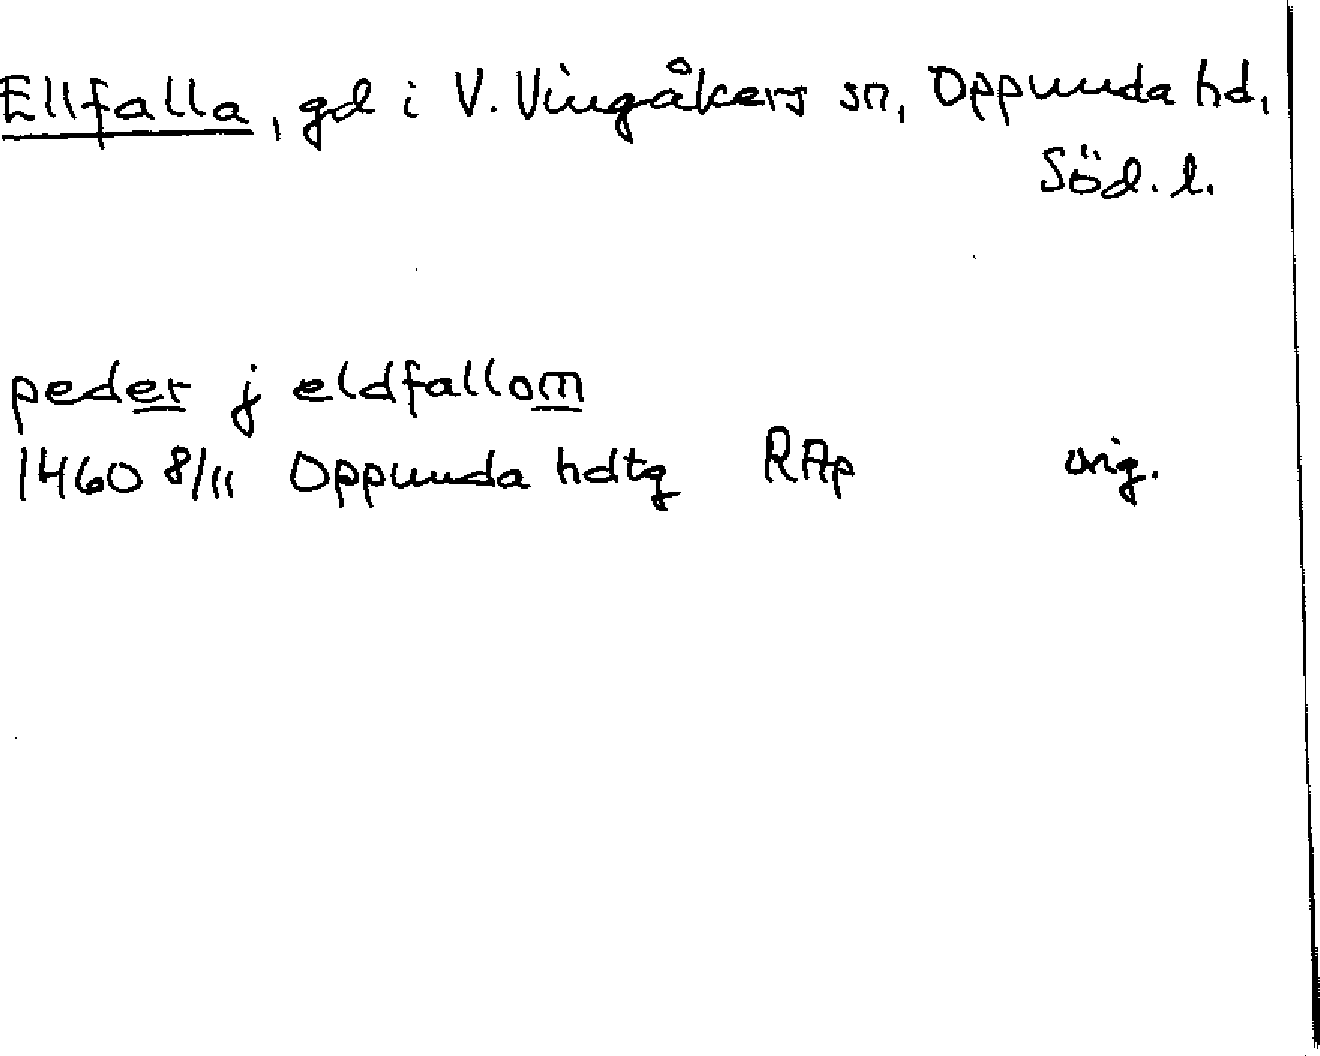 Ellfalla, gd i V. Vingåkers sn, Oppunda hd,
Söd. l.
peder j eldfallom
1460 8/11 Oppunda hdtg RAp orig.